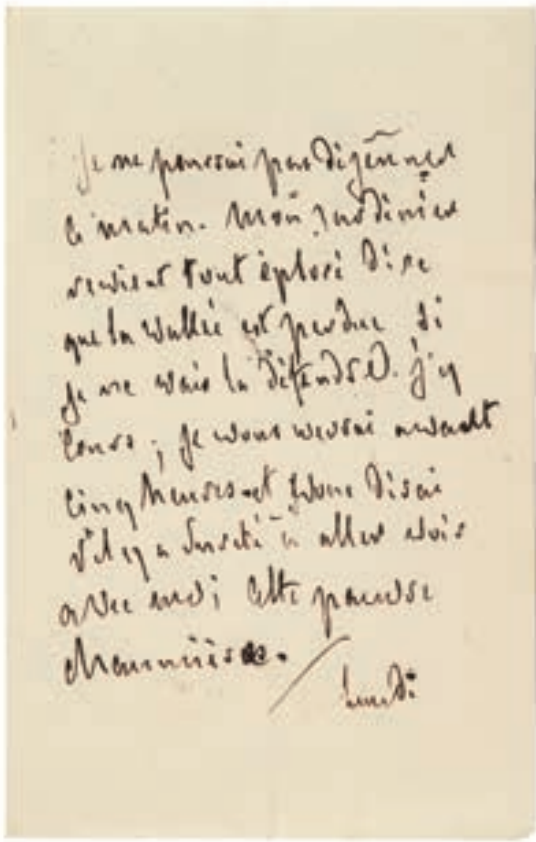 Je ne pourrai pas déjeûner
ce matin. Mon jardinier
revient tout éploré dire
que la vallée est perdue si
je ne vais la défendre. j'y
cours ; je vous verrai avant
cinq heures et vous dirai
s'il y a sureté à aller voir
avec moi cette pauvre
chaumière.
lundi